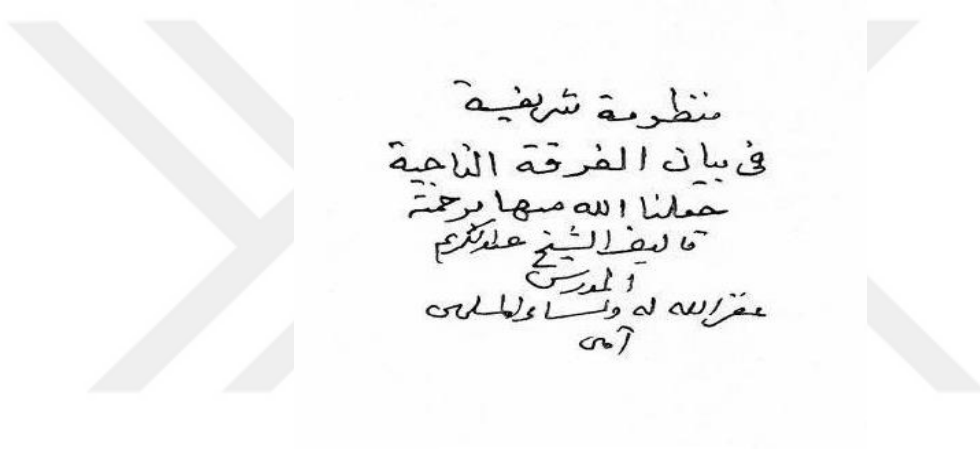 منظومة شريفة
في بيان الفرقة الناجية
جعلنا الله منها برحمته
تاليف الشيخ عبدالكريم
المدرس
غفر الله له ولسائر المسلمين
آمين